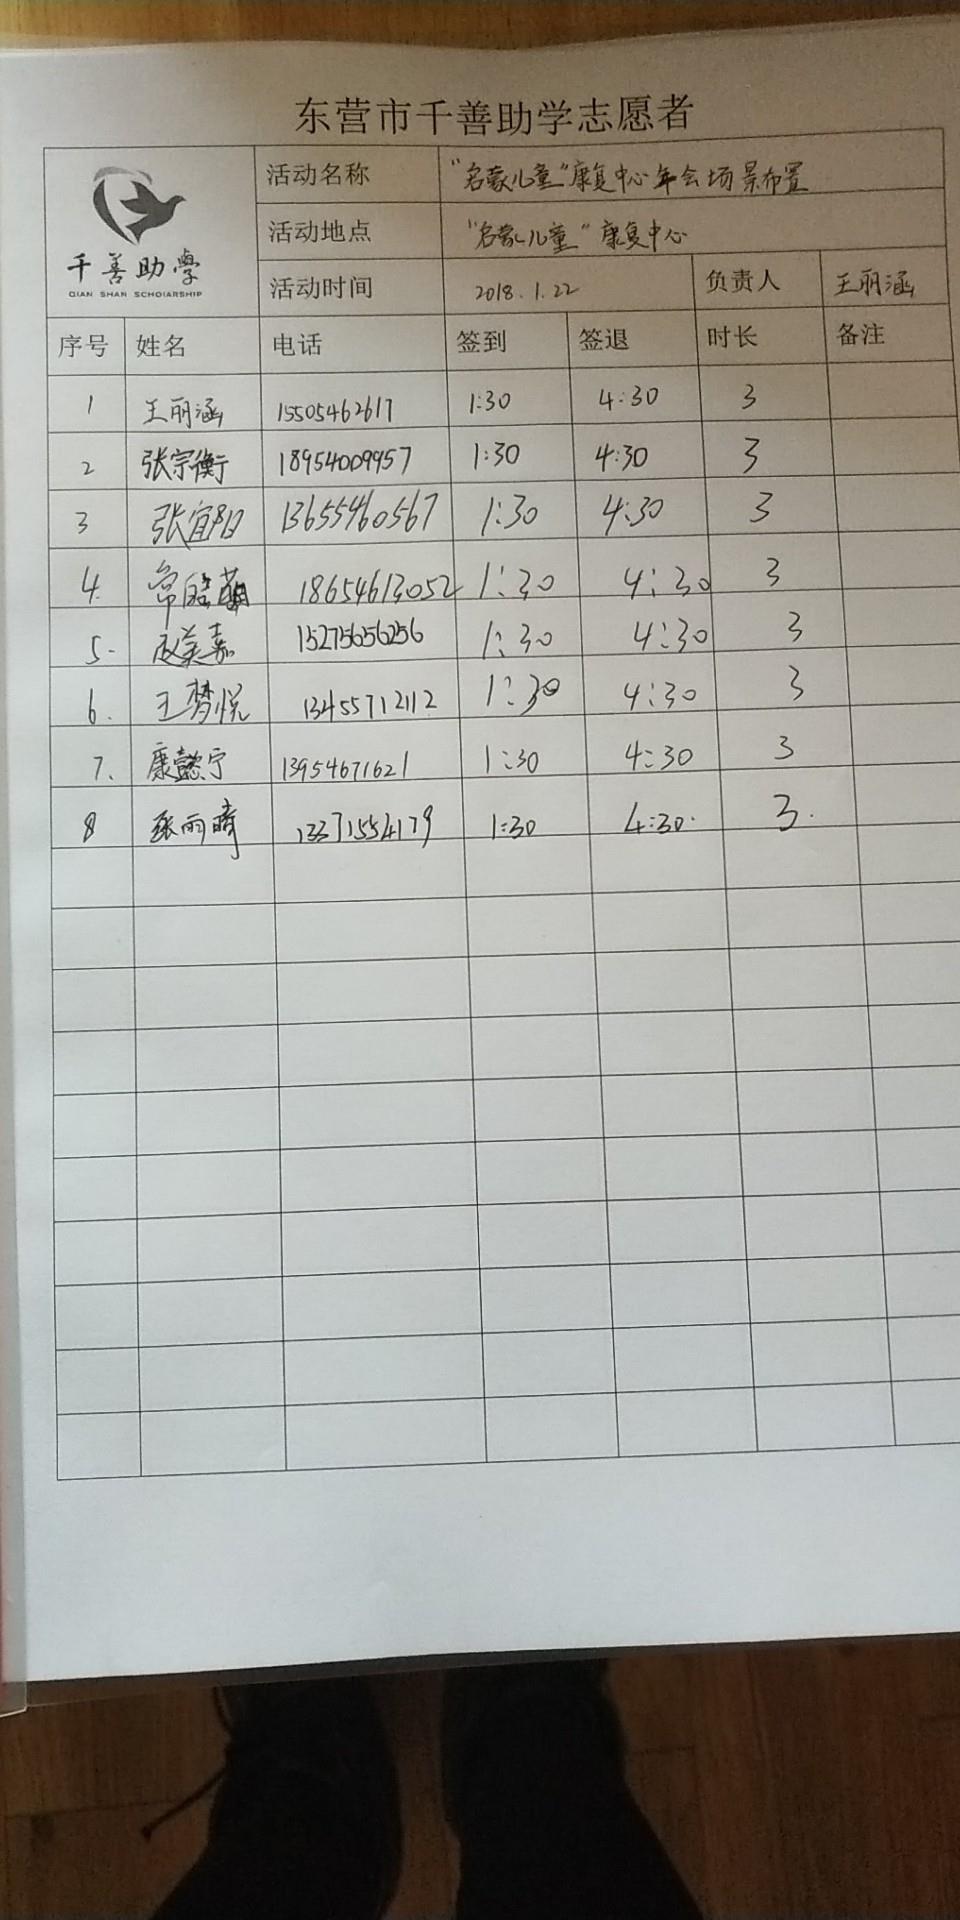 东营市千善助学志愿者
千善助學
QIAN SHAN SCHOLARSHIP
活动名称 "启蒙儿童"康复中心年会场景布置
活动地点 "启蒙儿童"康复中心
活动时间 2018.1.22 负责人 王丽涵
序号 姓名 电话 签到 签退 时长 备注
1 王丽涵 15505462617 1:30 4:30 3
2 张宗衡 18954009957 1:30 4:30 3
3 张宜阳 13655460567 1:30 4:30 3
4. 常 18654613052 1:30 4:30 3
5. 赵美嘉 15275656256 1:30 4:30 3
6. 王梦悦 13455712112 1:30 4:30 3
7. 康懿宁 13954671621 1:30 4:30 3
8 张雨晴 13371554179 1:30 4:30. 3.